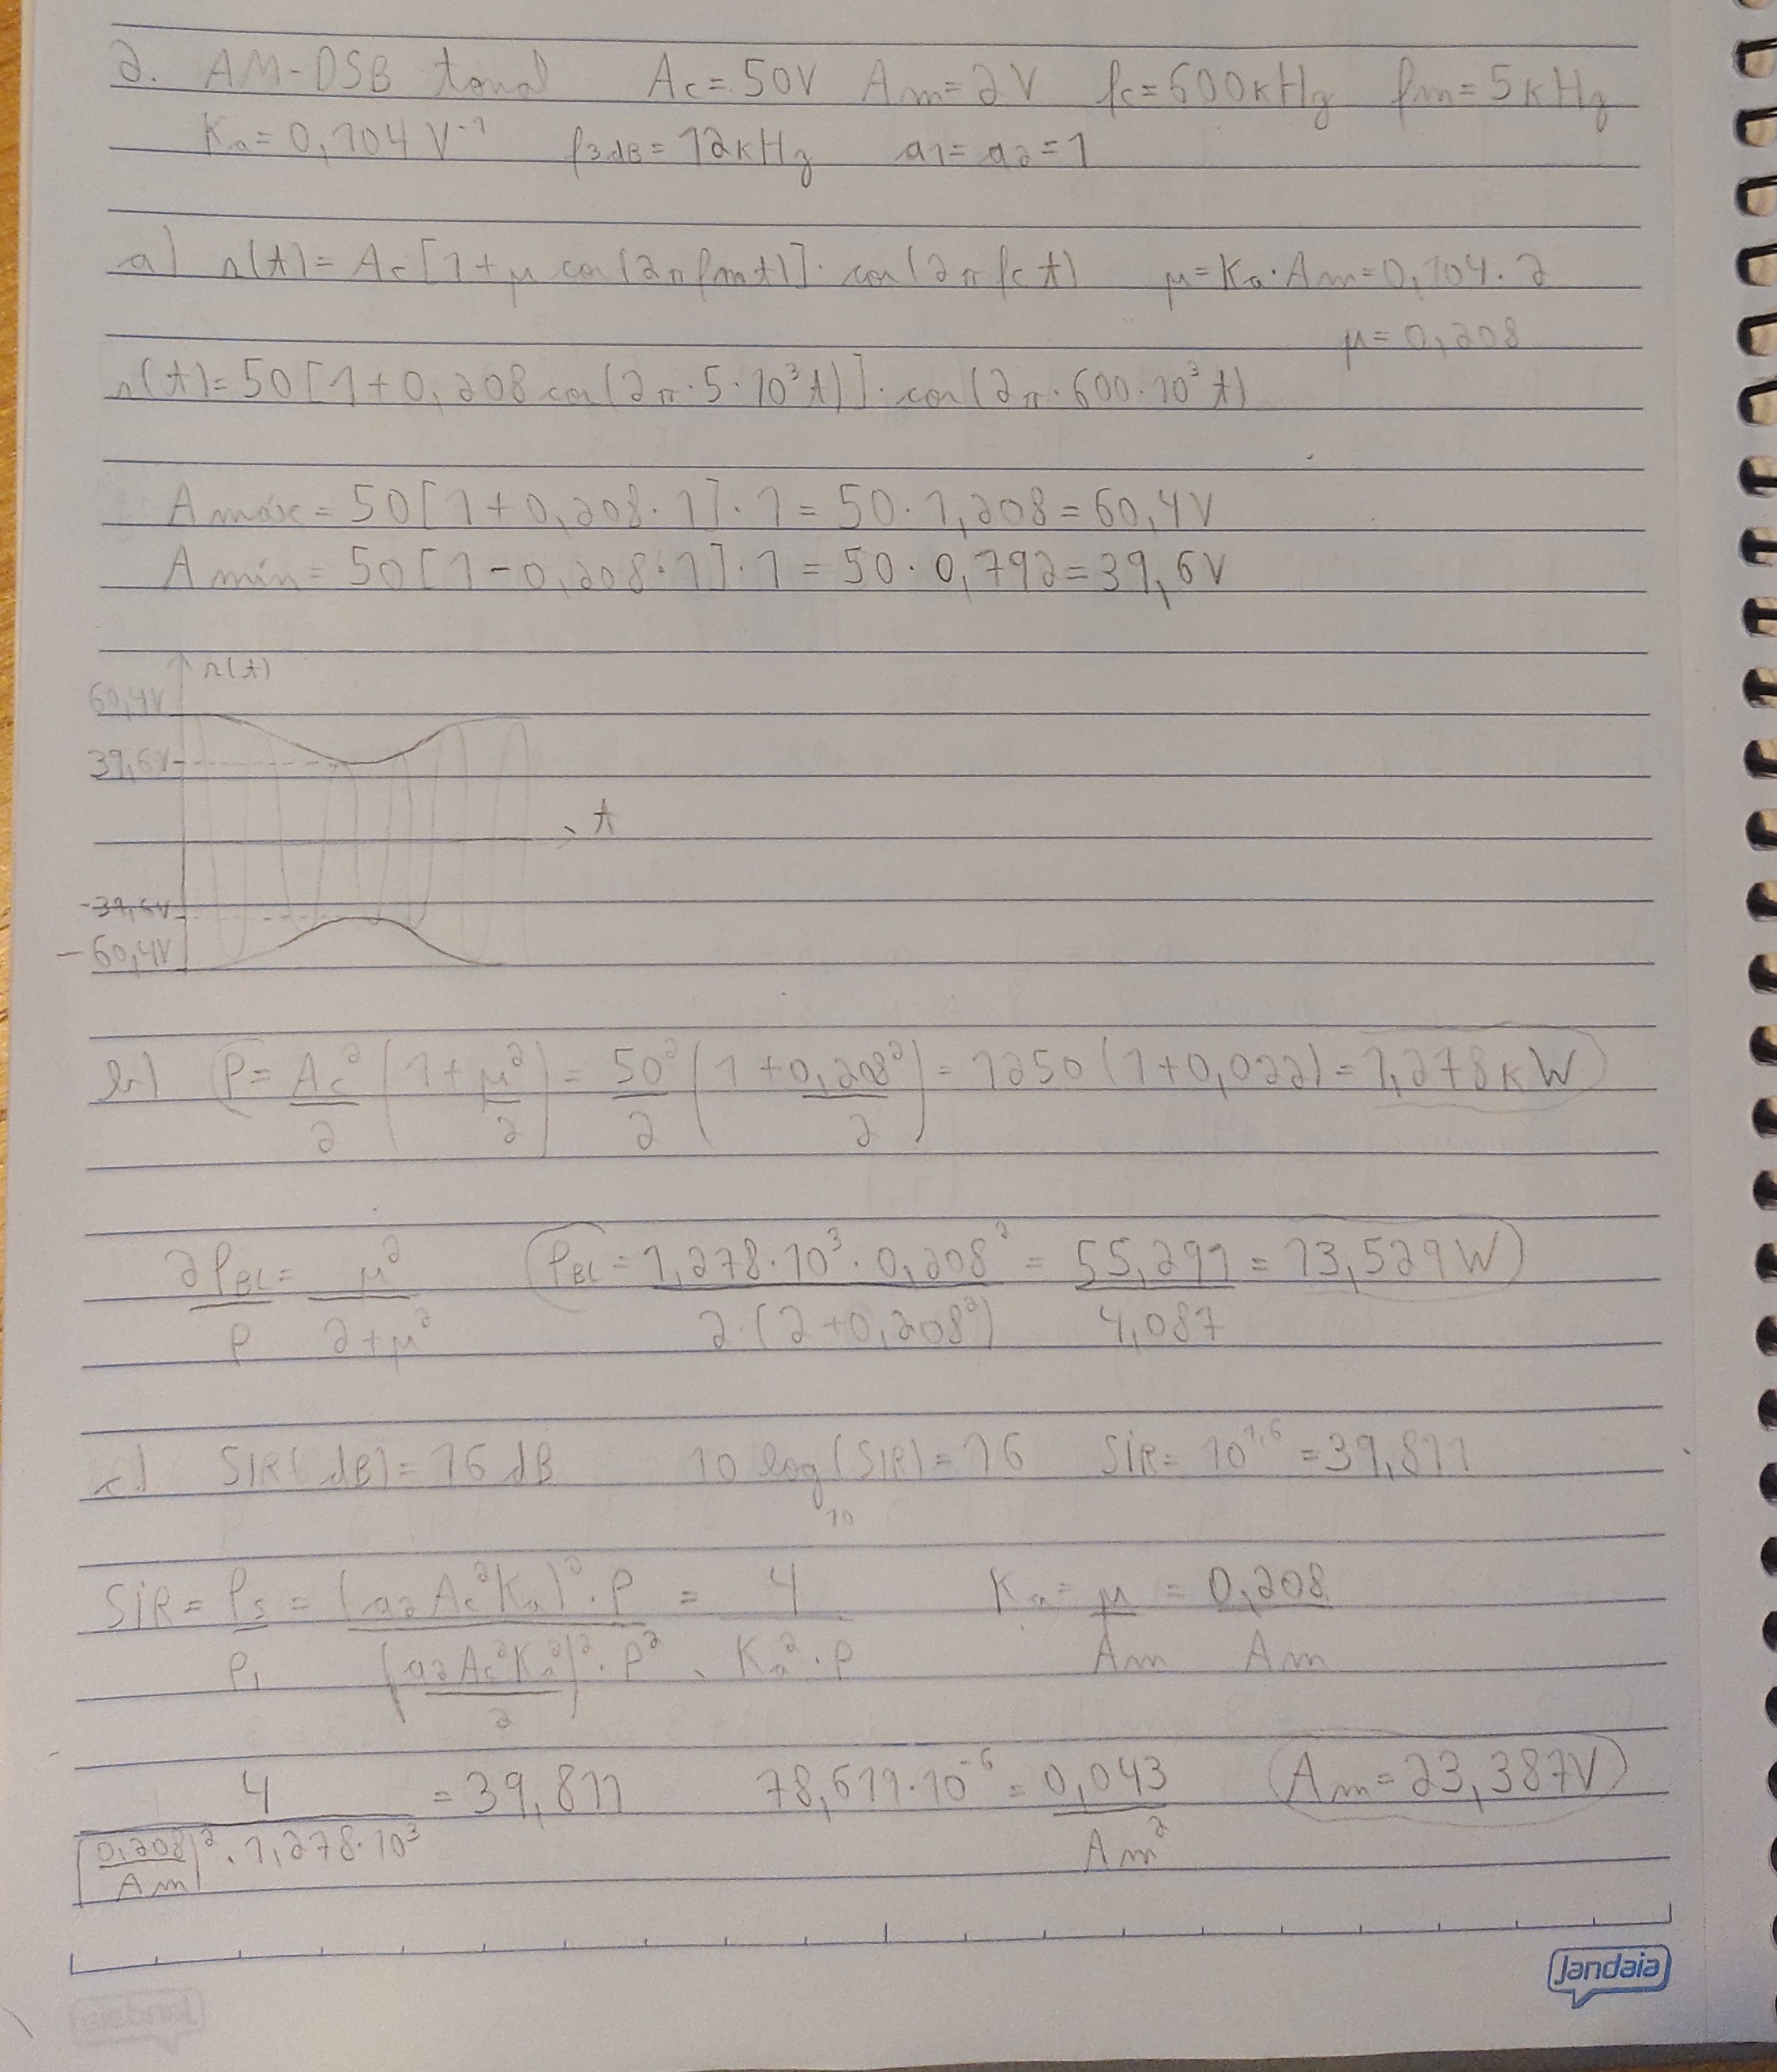 2. AM-DSB tonal Ac=50V Am=2V fc=600kHz fm=5kHz
Ka=0,104V⁻¹ f3dB=12kHz a1=a2=1
a) s(t)=Ac[1+μ cos(2πfmt)]·cos(2πfct) μ=Ka·Am=0,104·2
μ=0,208
s(t)=50[1+0,208cos(2π·5·10³t)]·cos(2π·600·10³t)
Amáx=50[1+0,208·1]·1=50·1,208=60,4V
Amín=50[1-0,208·1]·1=50·0,792=39,6V
s(t)
60,4V
39,6V
t
-39,6V
-60,4V
b) P=Ac²/2 (1+μ²/2)=50²/2 (1+0,208²/2)=1250(1+0,022)=1,278kW
2PBL/P=μ²/(2+μ²) PBL=1,278·10³·0,208²/2·(2+0,208²)=55,291/4,087=13,529W
c) SIR(dB)=16dB 10 log₁₀(SIR)=16 SIR=10^1,6=39,811
SIR=Ps/PI=(a2Ac²Ka)²·P/(a2Ac²Ka²/2)²·P²=4/Ka²·P Ka=μ/Am=0,208/Am
4/(0,208/Am)²·1,278·10³=39,811 78,619·10⁻⁶=0,043/Am² Am=23,387V
Jandaia